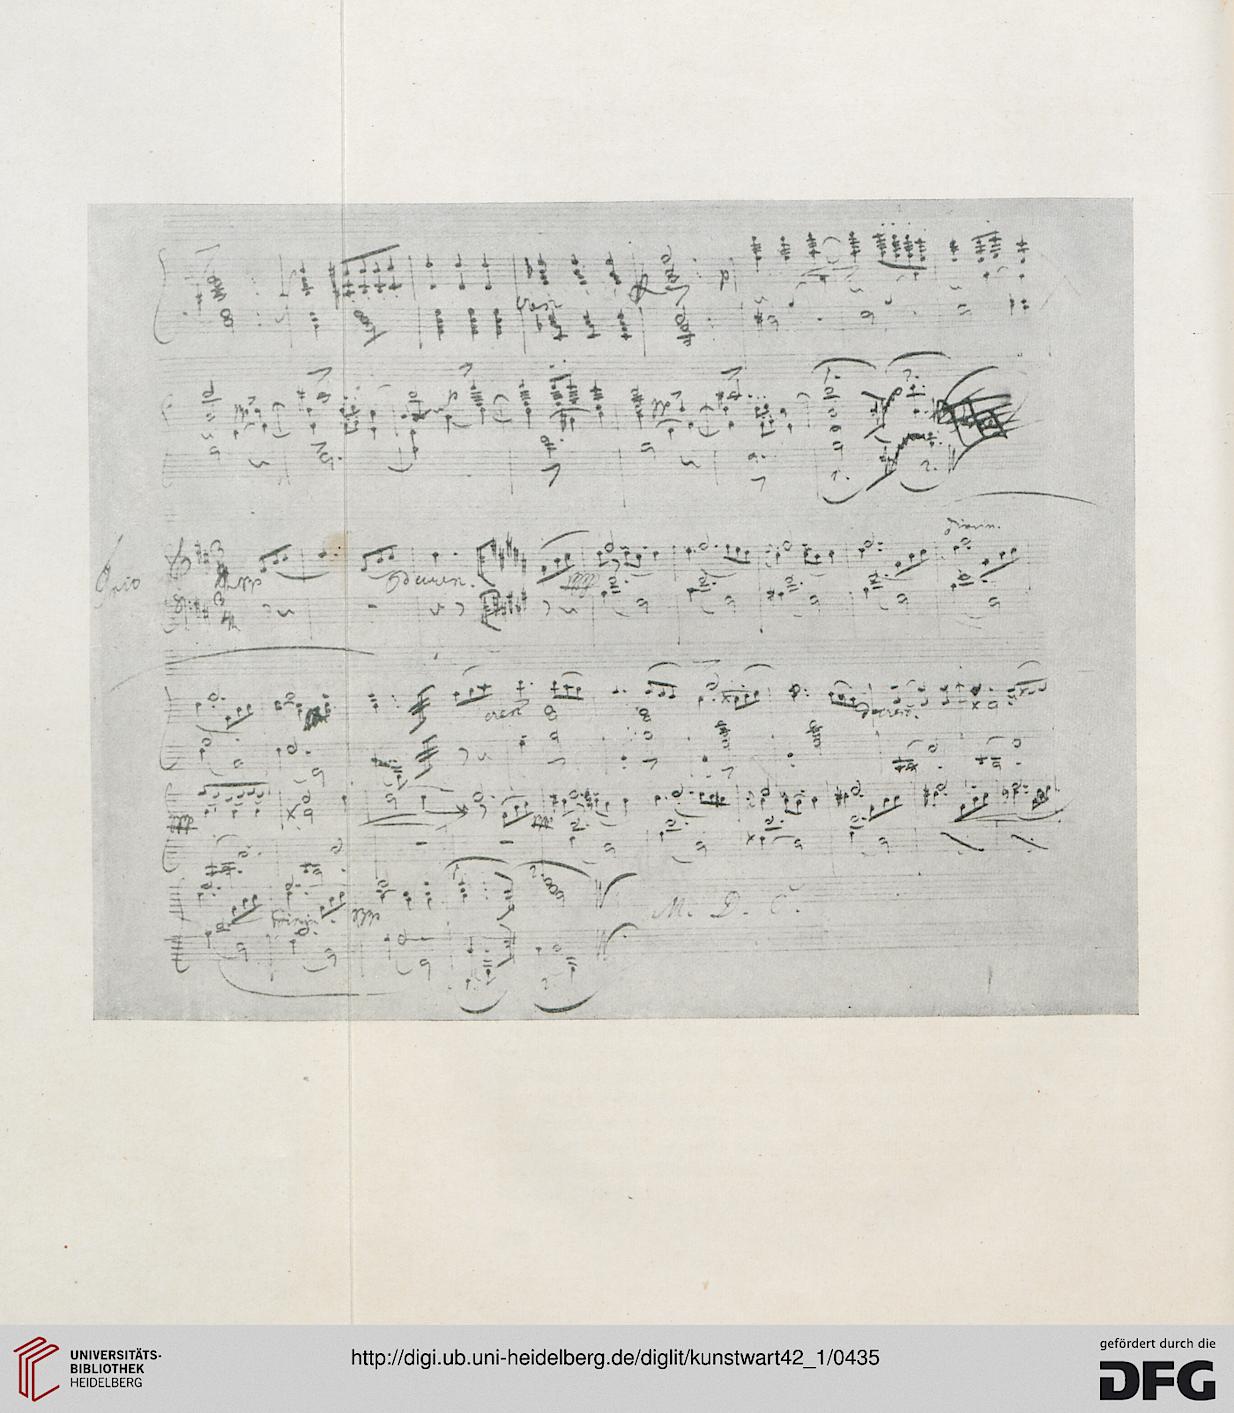 dimin.
Trio
pp
decresc.
cresc
decresc.
1.
2.
M. D. C.
UNIVERSITÄTS-
BIBLIOTHEK
HEIDELBERG
http://digi.ub.uni-heidelberg.de/diglit/kunstwart42_1/0435
gefördert durch die
DFG